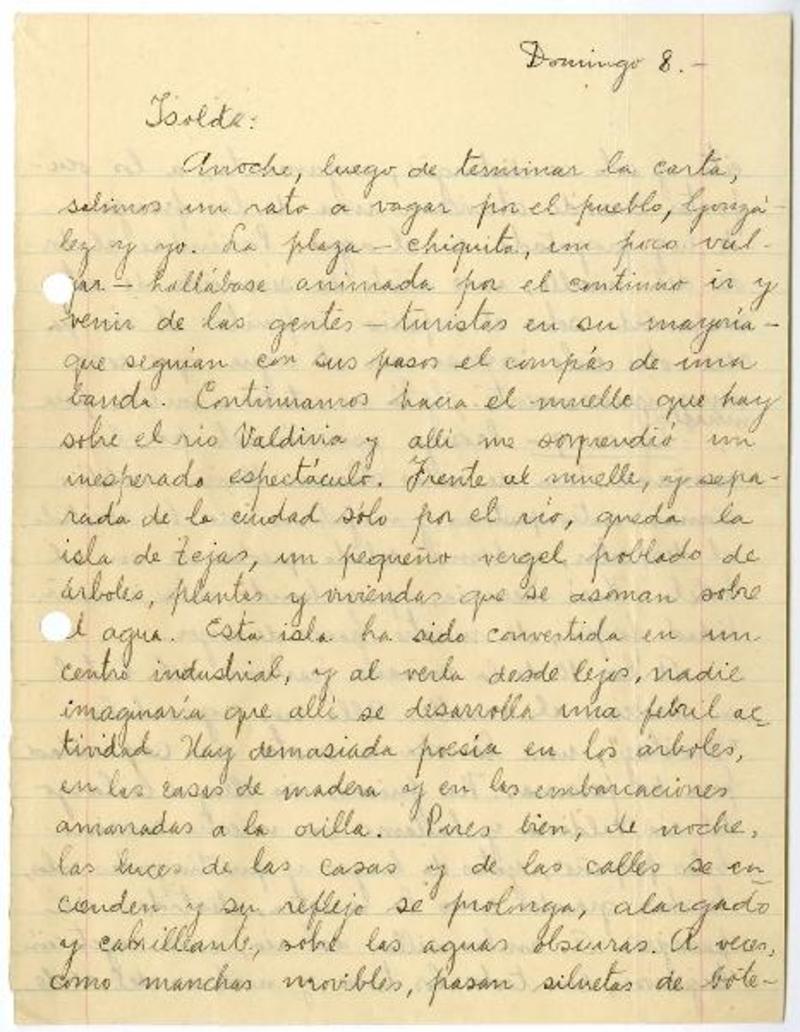 Domingo 8.-
Isolda:
Anoche, luego de terminar la carta,
salimos un rato a vagar por el pueblo, Gonzá-
lez y yo. La plaza - chiquita, un poco vul-
gar - hallábase animada por el continuo ir y
venir de las gentes - turistas en su mayoría -
que seguían con sus pasos el compás de una
banda. Continuamos hacia el muelle que hay
sobre el río Valdivia y allí me sorprendió un
inesperado espectáculo. Frente al muelle, y sepa-
rada de la ciudad sólo por el río, queda la
isla de Tejas, un pequeño vergel poblado de
árboles, plantas y viviendas que se asoman sobre
el agua. Esta isla ha sido convertida en un
centro industrial, y al verla desde lejos, nadie
imaginaría que allí se desarrolla una febril ac-
tividad. Hay demasiada poesía en los árboles,
en las casas de madera y en las embarcaciones
amarradas a la orilla. Pues bien, de noche,
las luces de las casas y de las calles se en-
cienden y su reflejo se prolonga, alargado
y cabrilleante, sobre las aguas obscuras. A veces,
como manchas movibles, pasan siluetas de bote-